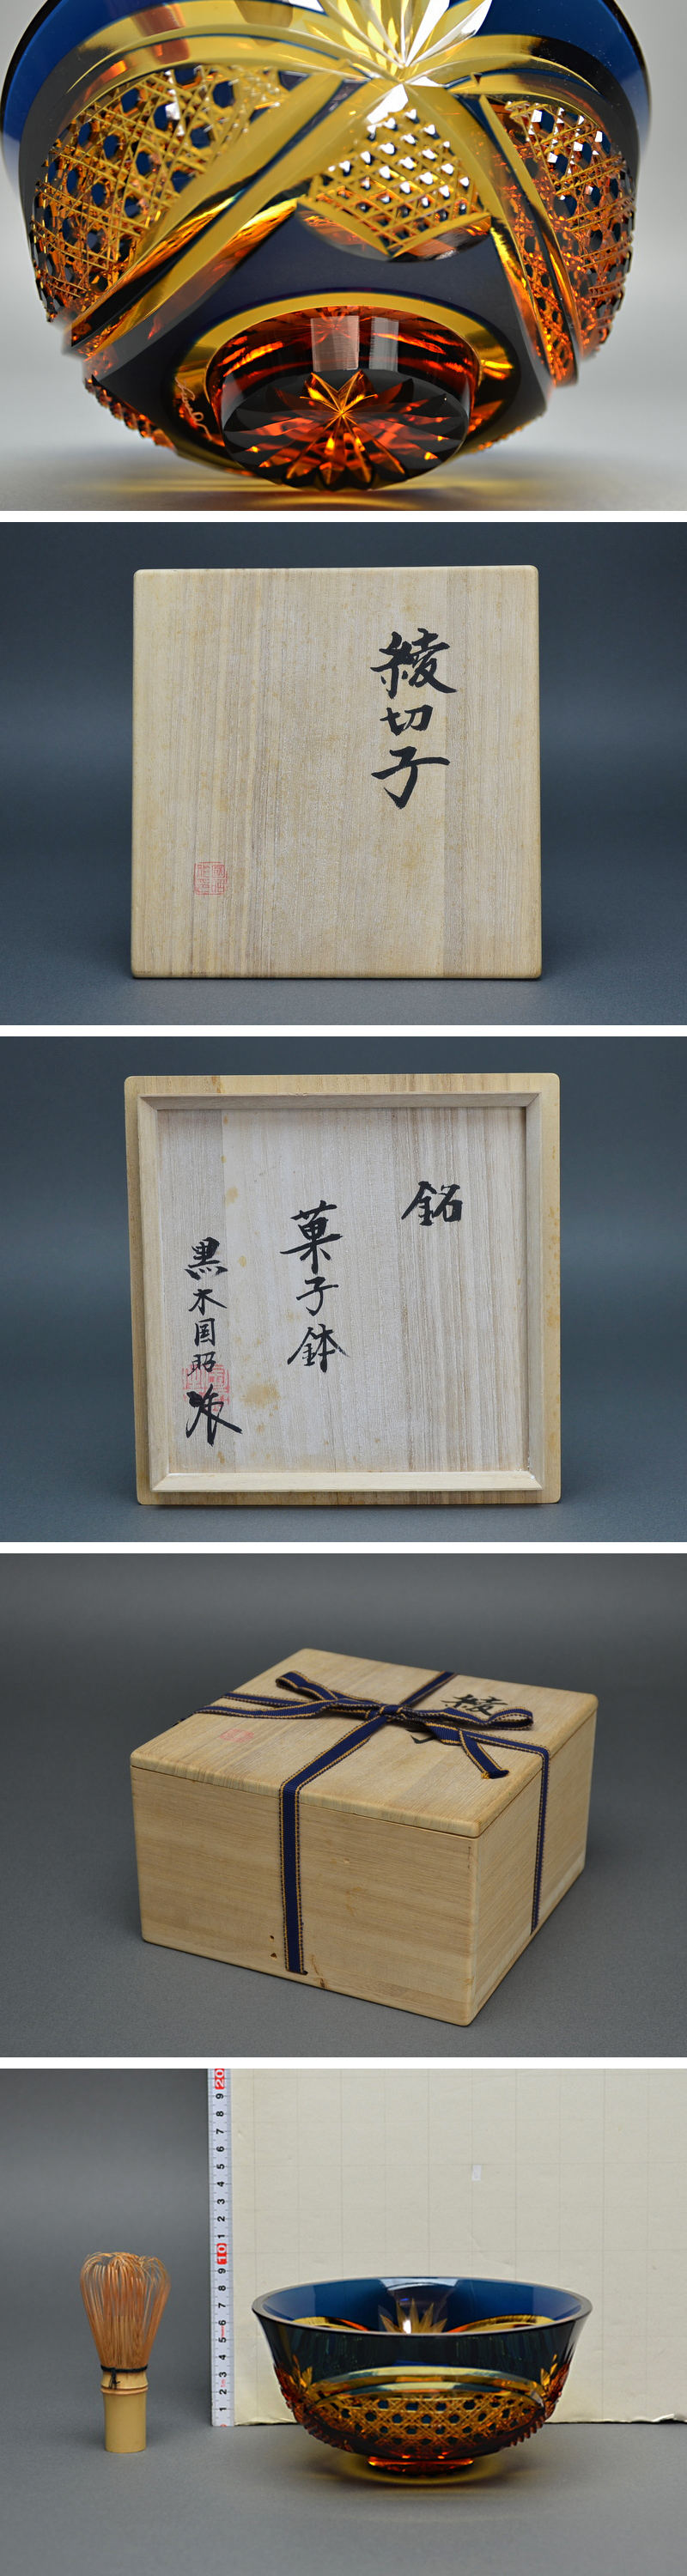 綾切子
銘
菓子鉢
黒木国昭作
綾
20
9
8
7
6
5
4
3
2
1
10
9
8
7
6
5
4
3
2
1